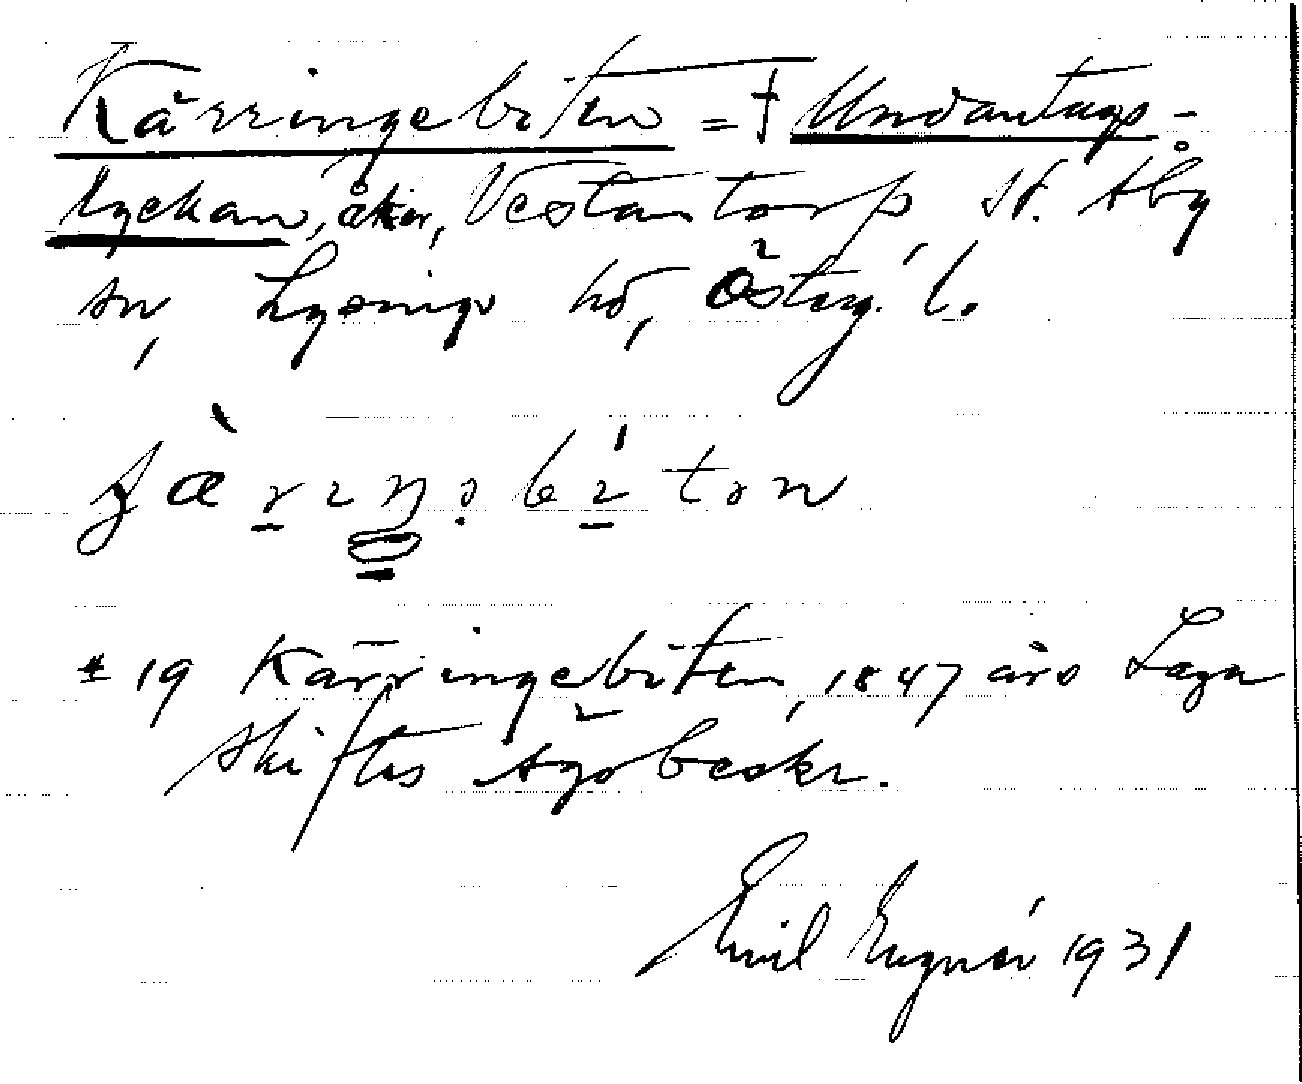 Kärringebiten = † Undantags-
lyckan, åker, Vestantorp, St. Åby
sn, Lysings hd, Österg. l.
± 19 Kärringebiten, 1847 års Laga
skiftes Ägobeskr.
Emil 1931